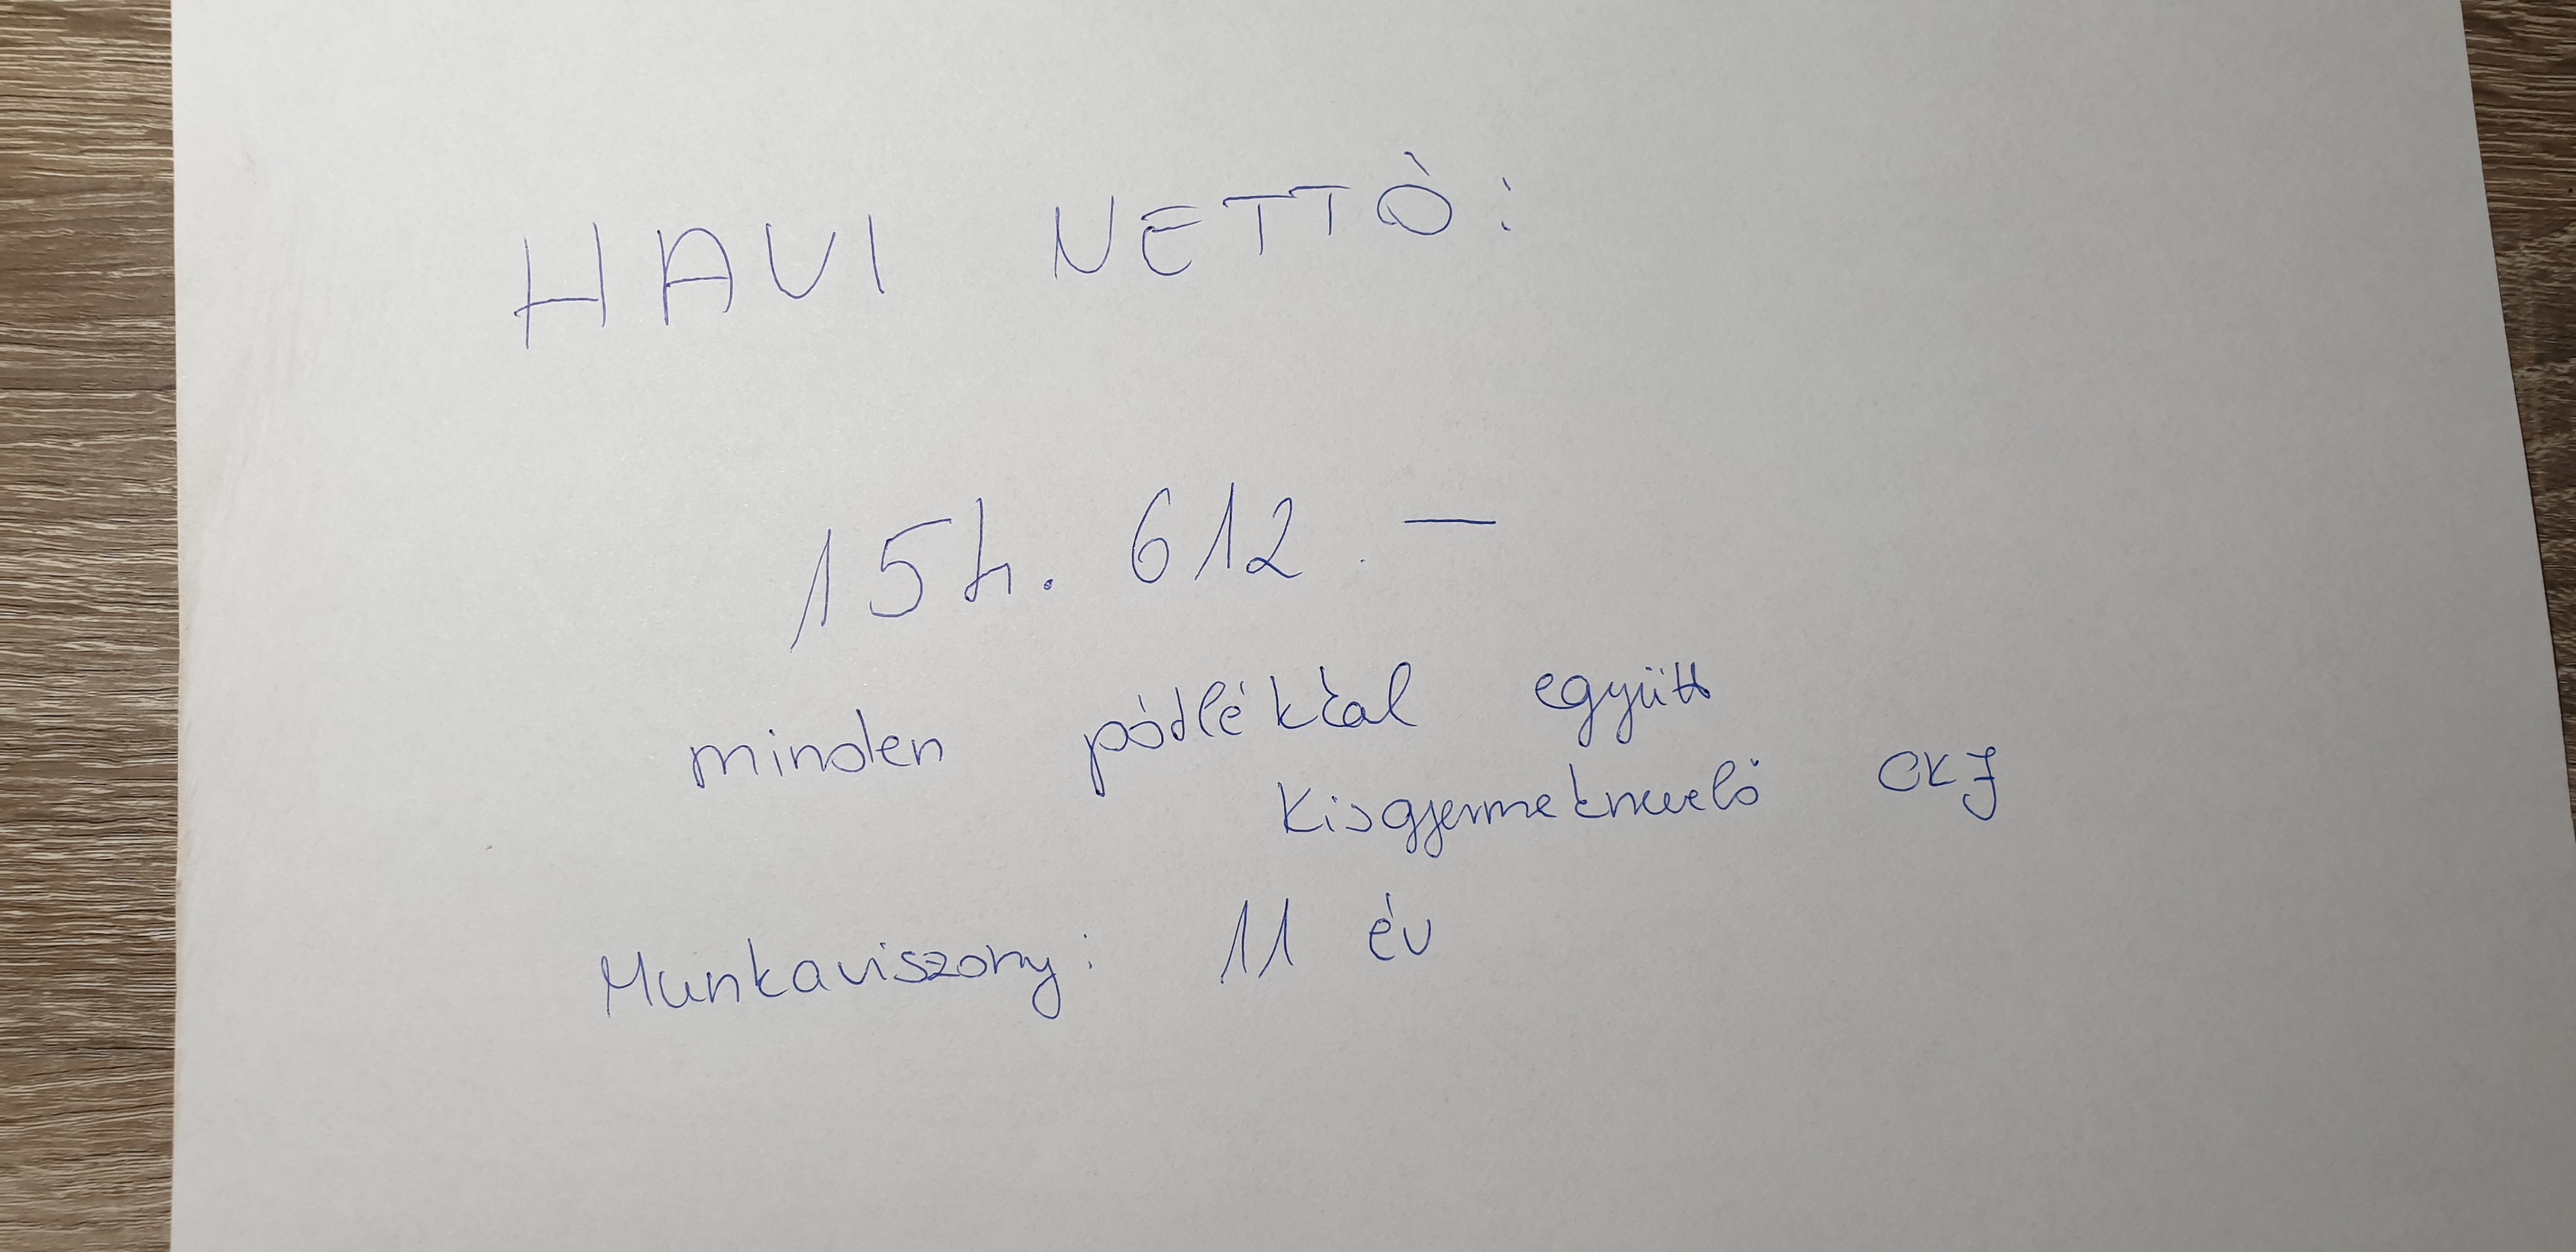 HAVI NETTÓ:
154.612.-
minden pótlékkal együtt
Kisgyermeknevelő OKJ
Munkaviszony: 11 év